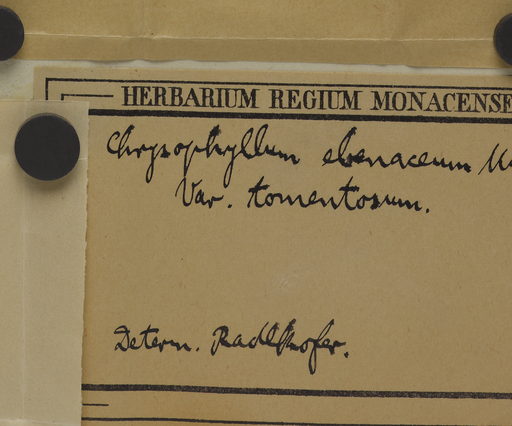 HERBARIUM REGIUM MONACENSE
Chrysophyllum ebenaceum
Var. tomentosum.
Determ. Radlkofer.